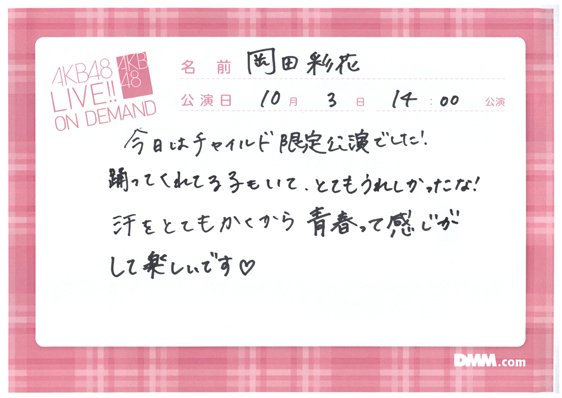 AKB48
LIVE!!
ON DEMAND
AKB
48
名前 岡田彩花
公演日 10月 3日 14:00 公演
今日はチャイルド限定公演でした!
踊ってくれてる子もいて、とてもうれしかったな!
汗をとてもかくから青春って感じが
して楽しいです♡
DMM.com